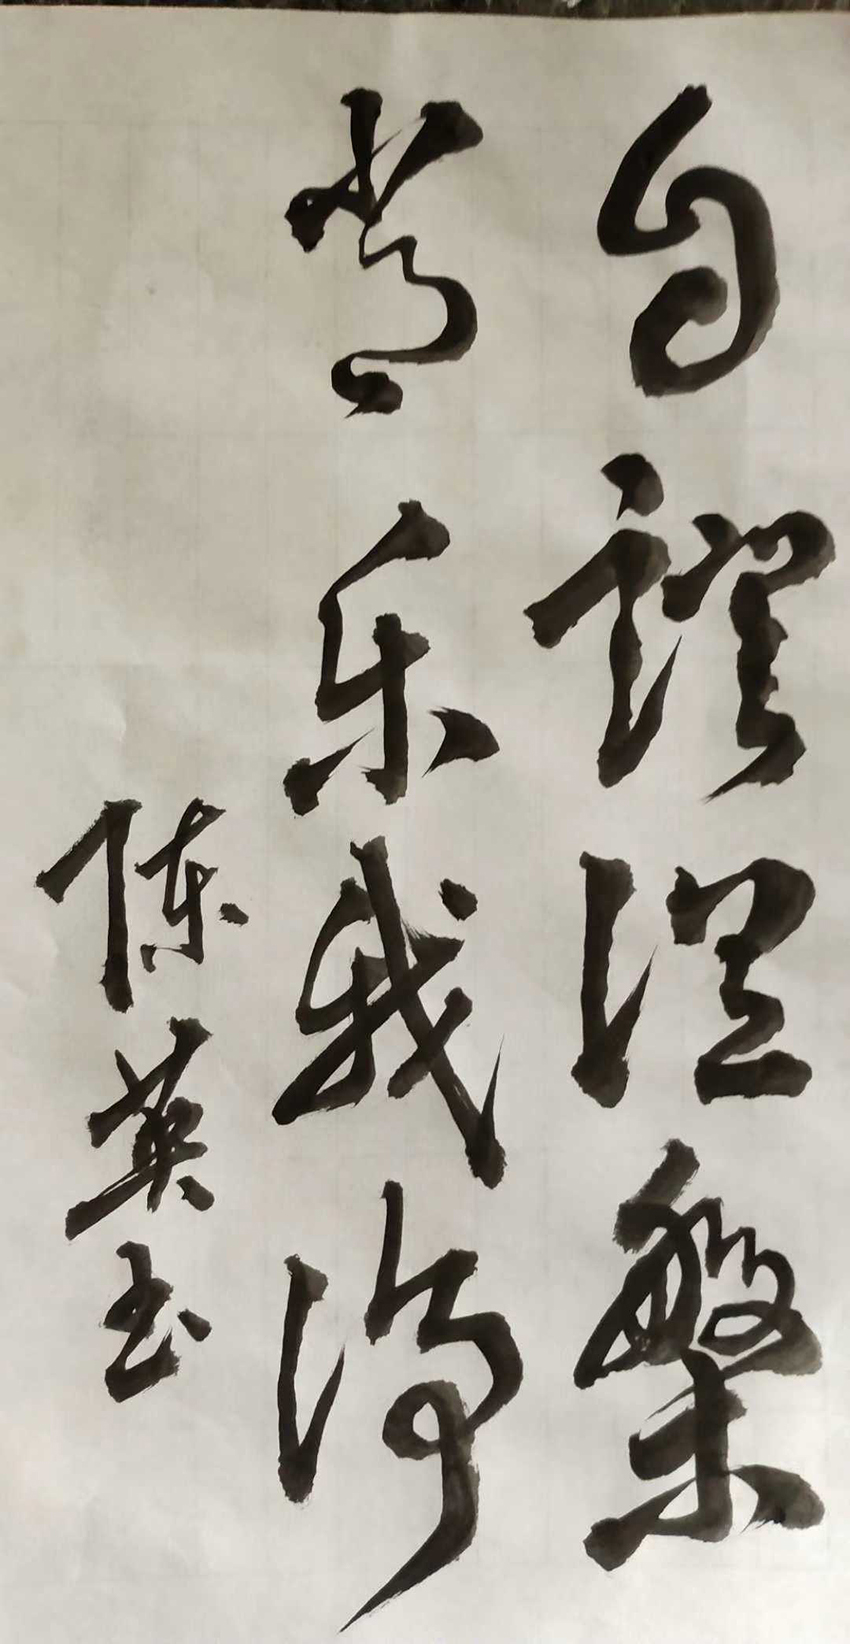 自證涅槃
常乐我净
陈英玉